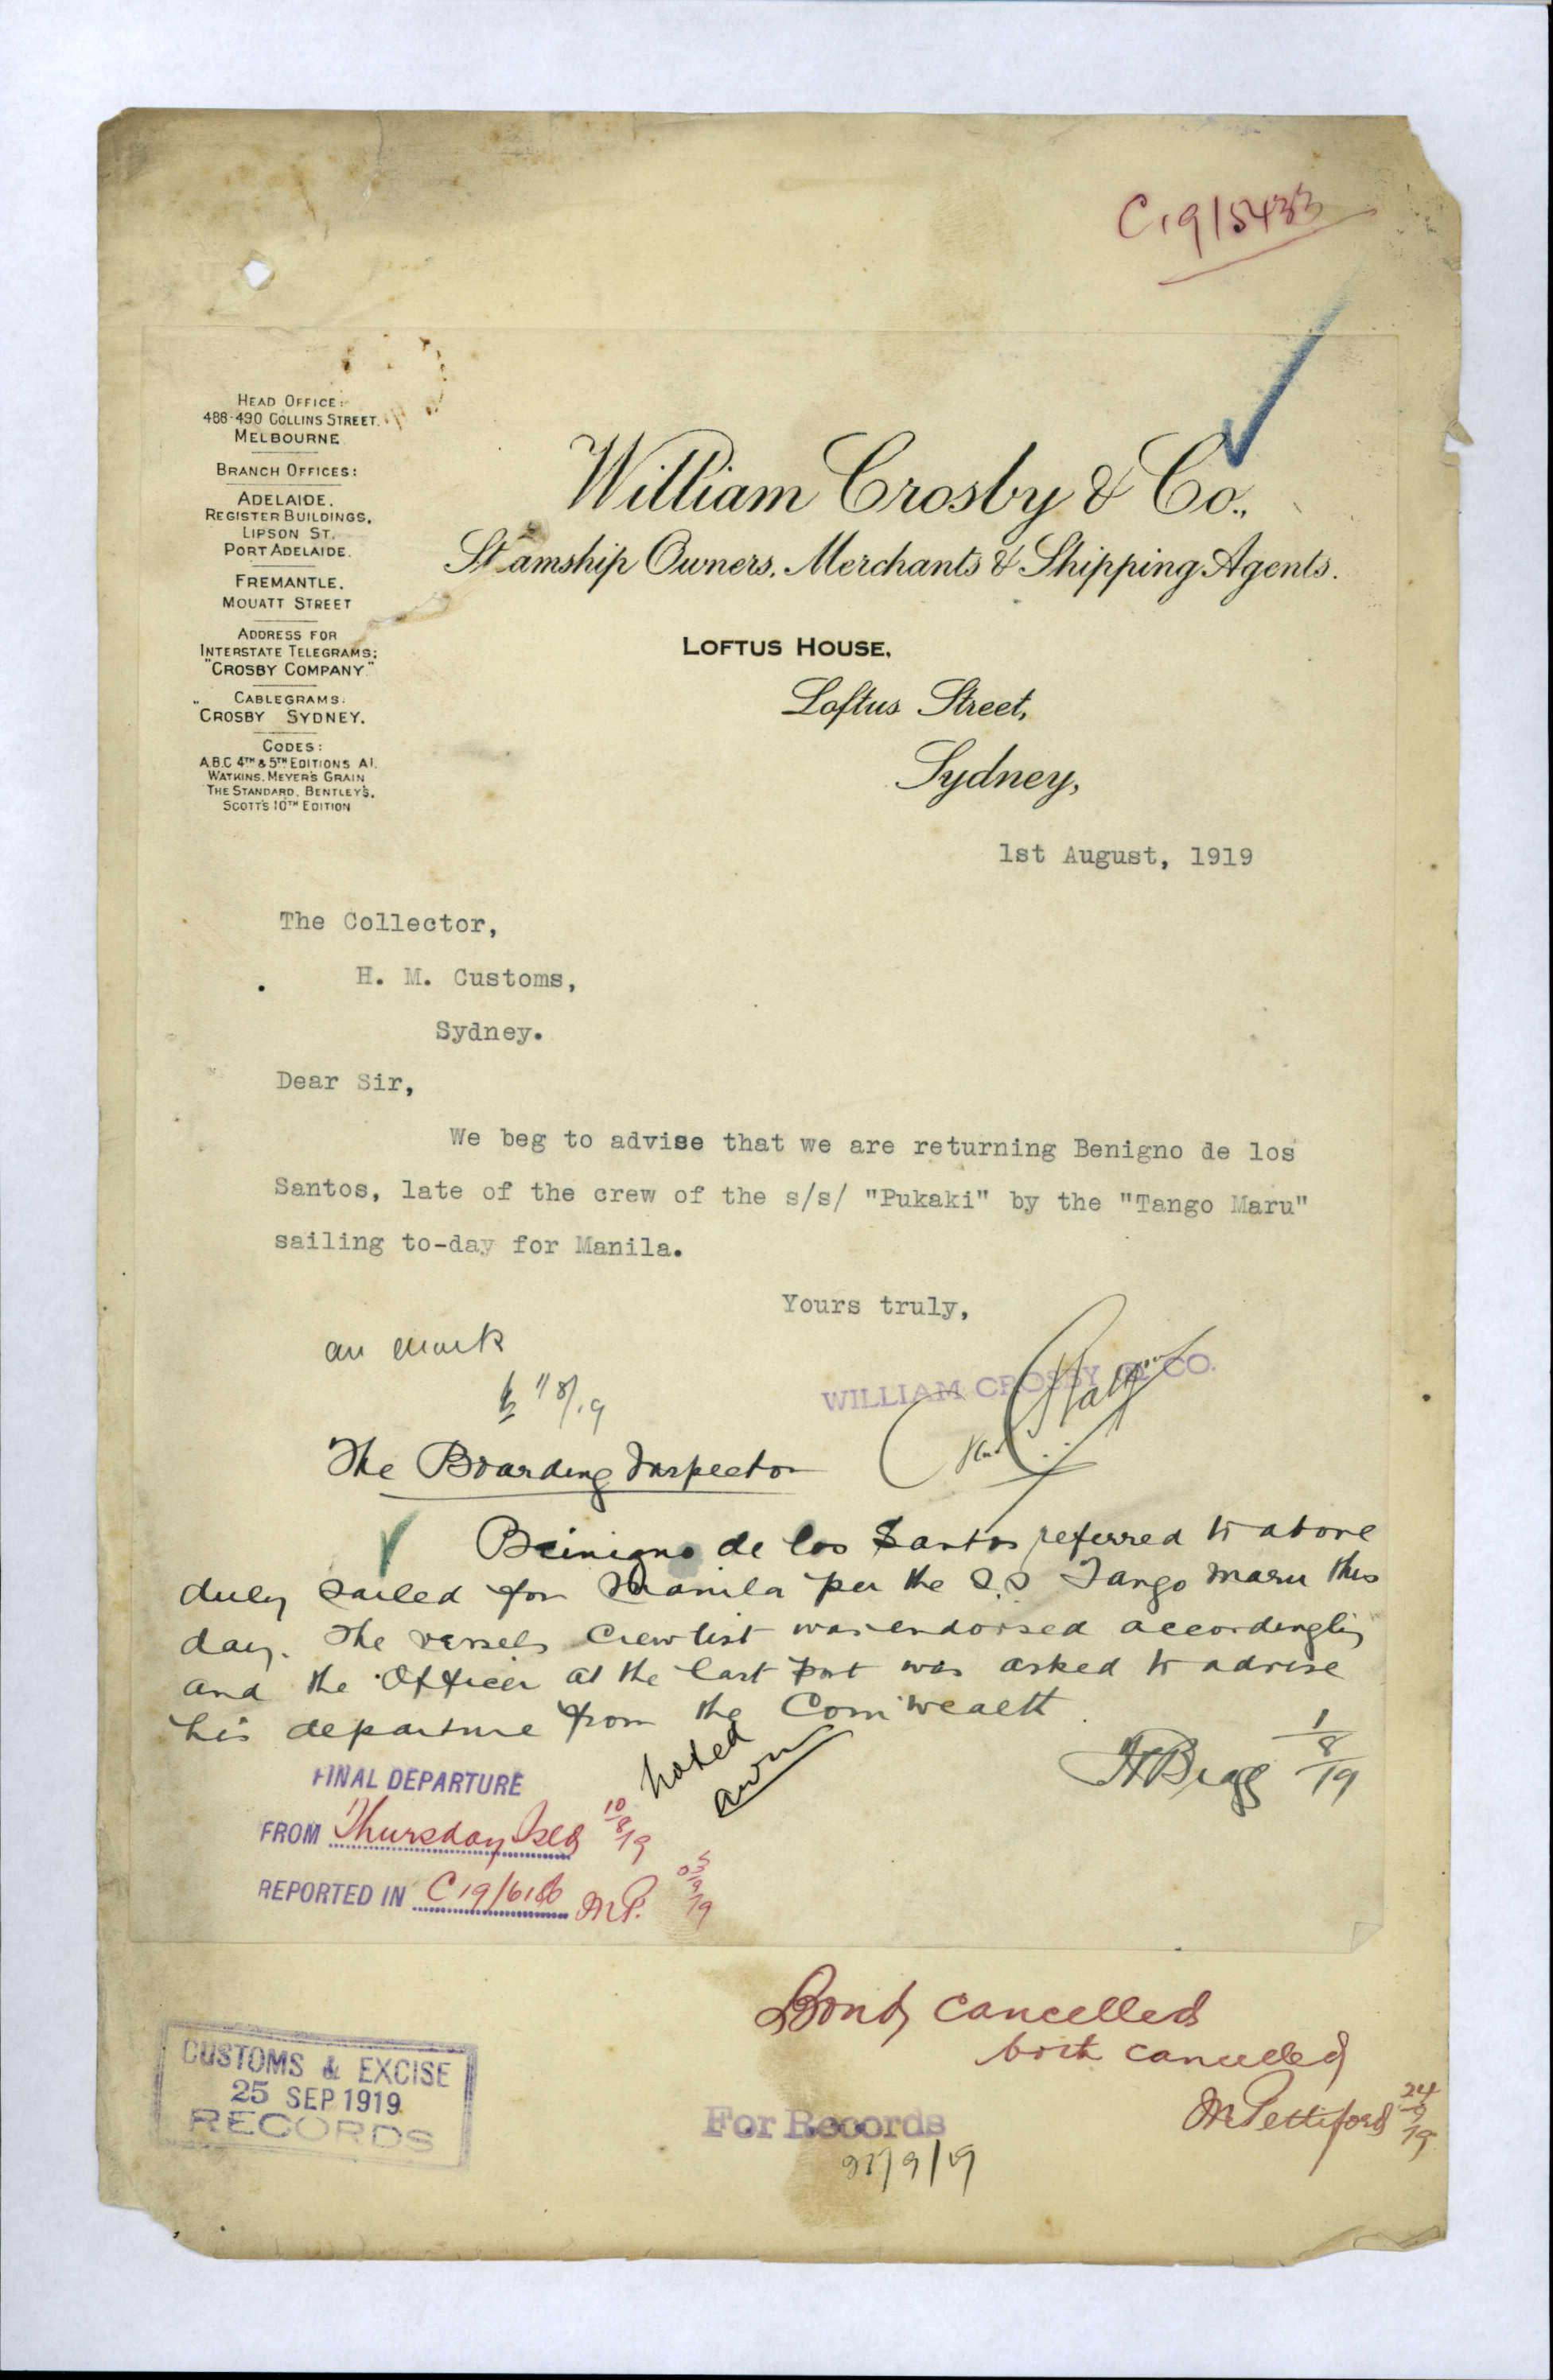 C19/5433
HEAD OFFICE:
488-490 COLLINS STREET.
MELBOURNE
BRANCH OFFICES:
ADELAIDE.
REGISTER BUILDINGS,
LIPSON ST.
PORT ADELAIDE.
FREMANTLE.
MOUATT STREET
ADDRESS FOR
INTERSTATE TELEGRAMS:
"CROSBY COMPANY"
CABLEGRAMS.
"CROSBY SYDNEY.
CODES:
A.B.C 4TH & 5TH EDITIONS A1.
WATKINS. MEYER'S GRAIN
THE STANDARD. BENTLEY'S.
SCOTT'S 10TH EDITION
William Crosby & Co.,
St amship Owners, Merchants & Shipping Agents.
LOFTUS HOUSE,
Loftus Street,
Sydney,
1st August, 1919
The Collector,
H. M. Customs,
Sydney.
Dear Sir,
We beg to advise that we are returning Benigno de los
Santos, late of the crew of the s/s/ "Pukaki" by the "Tango Maru"
sailing to-day for Manila.
Yours truly,
WILLIAM CROSBY & CO.
1/8/19
The Boarding Inspector
Beinigno de los Santos referred to above
duly sailed for Manila per the S.S Tango Maru this
day. The vessels Crew list was endorsed accordingly
and the Officer at the last port was asked to advise
his departure from the Com'wealth.
1/8/19
noted
FINAL DEPARTURE
FROM Thursday Isld 10/8/19
REPORTED IN C19/6186 M.P.
Bond cancelled
both cancelled
M Pettiford 24/9/19
CUSTOMS & EXCISE
25 SEP 1919
RECORDS
For Records